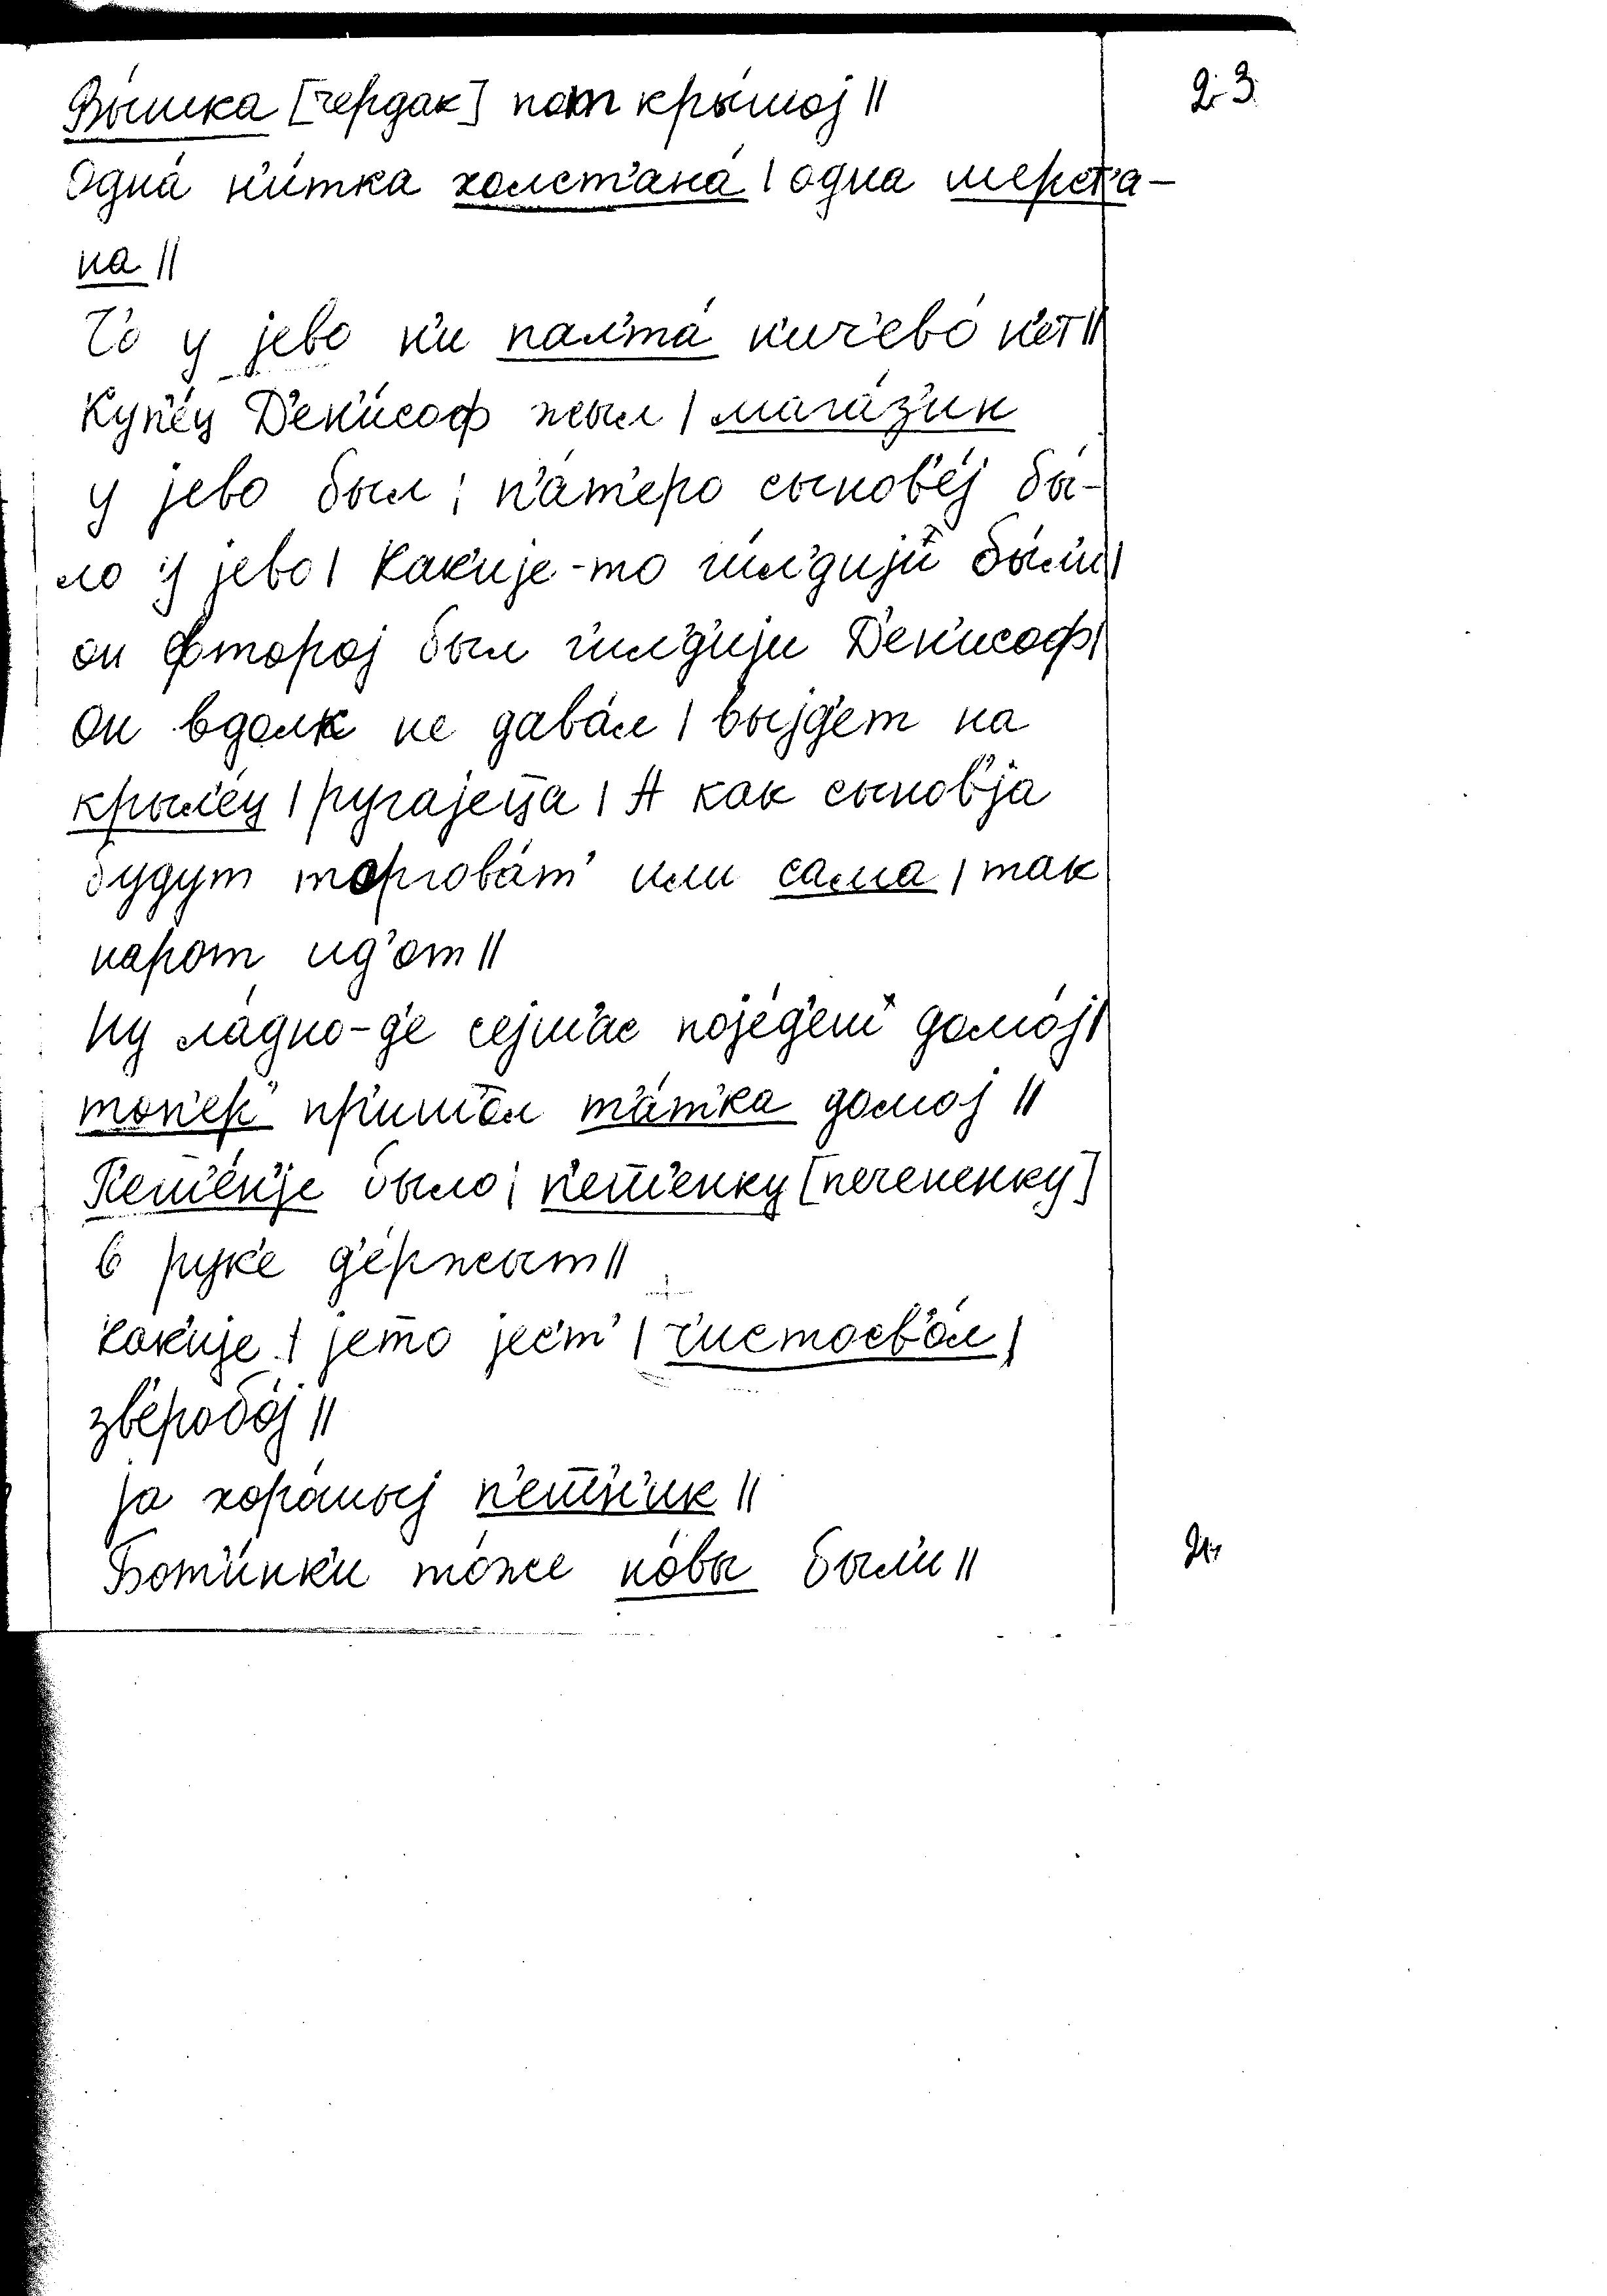 Вы́шка [чердак] пот кры́шој ||
Одна́ н'и́тка холст'ана́ | одна шерст'а-
на ||
Ч'о у јево н'и пал'та́ н'ич'ево́ н'ет ||
Куп'е́ц Д'ен'и́соф жыл | мага́з'ин
у јево был | п'а́т'еро сынов'е́ј бы́-
ло у јево | Как'ије-то г'ил'д'ији бы́л'и |
он фторој был г'ил'д'ији Д'ен'исоф |
Он вдолк не дава́л | выјд'ет на
крыл'е́ц | ругајеца | А как сынов'ја
будут торгова́т' или сама | так
народ ид'от ||
Ну ла́дно-д'е сејш'ас појед'еш домо́ј |
топ'ер' пр'ишо́л т'а́т'ка домој ||
П'еш'е́н'је было | п'еш'енку [печененку]
в рук'е д'е́ржыт ||
Как'ије | јето јес'т' | ч'истосв'о́л |
зв'еробо́ј ||
ја хоро́шыј п'еш'н'ик ||
Бот'и́нк'и то́же но́вы был'и ||
23